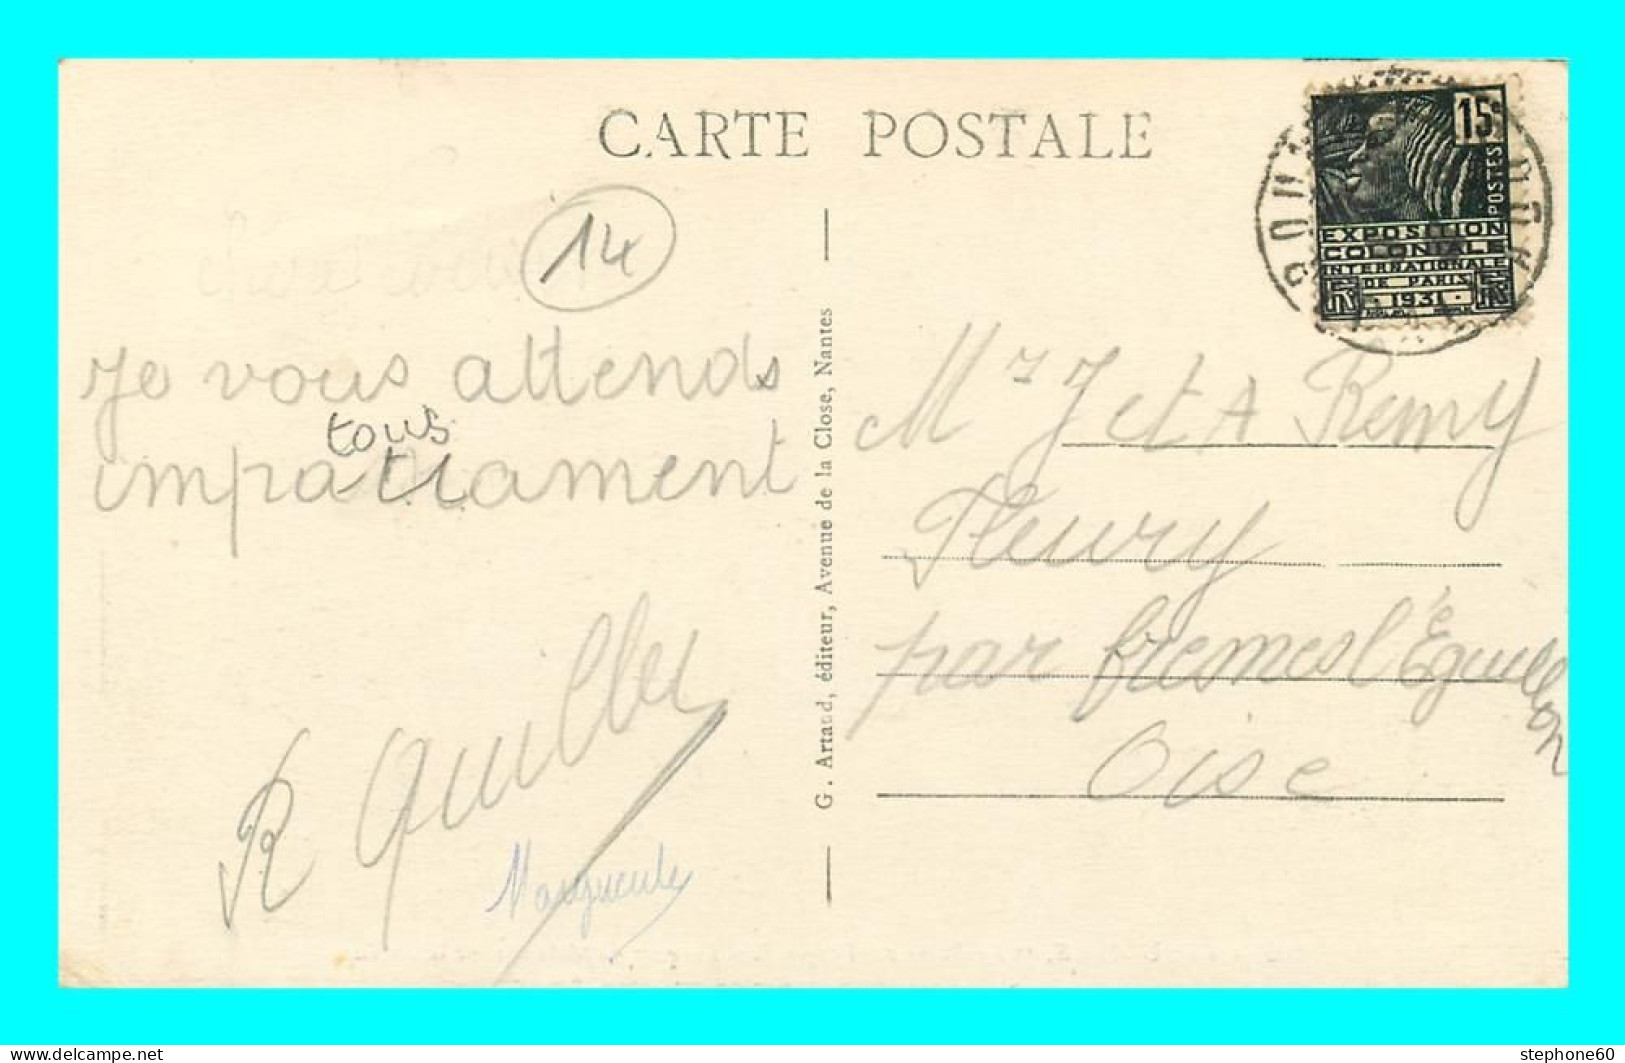 CARTE POSTALE
14
15c
POSTES
EXPOSITION
COLONIALE
INTERNATIONALE
DE PARIS
1931
Je vous attends
tous
impatiament
R Quillet
Marguerite
G. Artaud, éditeur, Avenue de la Close, Nantes
Mr J et A Remy
Fleury
par fresnes l'Éguillon
Oise
stephone60